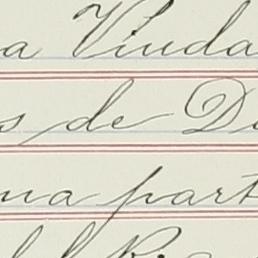 a Viuda
s de D
na part